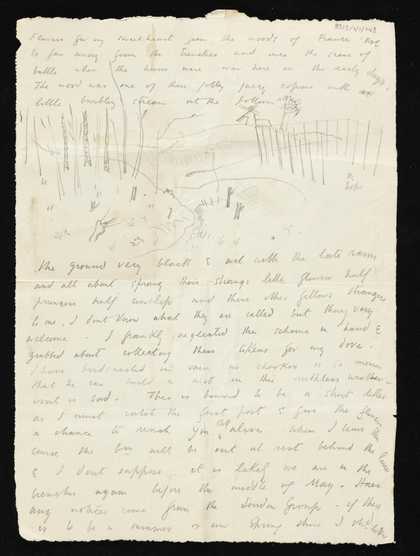 Flowers for my sweetheart from the woods of France not
so far away from the trenches and once the scene of
battle when the huns were near here in the early days.
The wood was one of those jolly copses with a
little bubbling stream at the bottom
The ground very black & wet with the late rains
and all about sprung these strange little flowers half
primrose half cowslip and these other fellows strangers
to me. I don't know what they are called but they're very
welcome. I frankly neglected the scheme in hand &
grubbed about collecting these tokens for my dove.
I have birdnested in vain no is so
that he can build a nest in this ruthless weather
wont is said. This is bound to be a short letter
as I must catch the first post & give the flowers
a chance to reach you alive. When I leave the
course the bn will be out at rest behind the lines
& I don't suppose it is likely we are in the
trenches again before the middle of May. Have
any notices come from the London Group - if there
is to be a summer or Spring show I